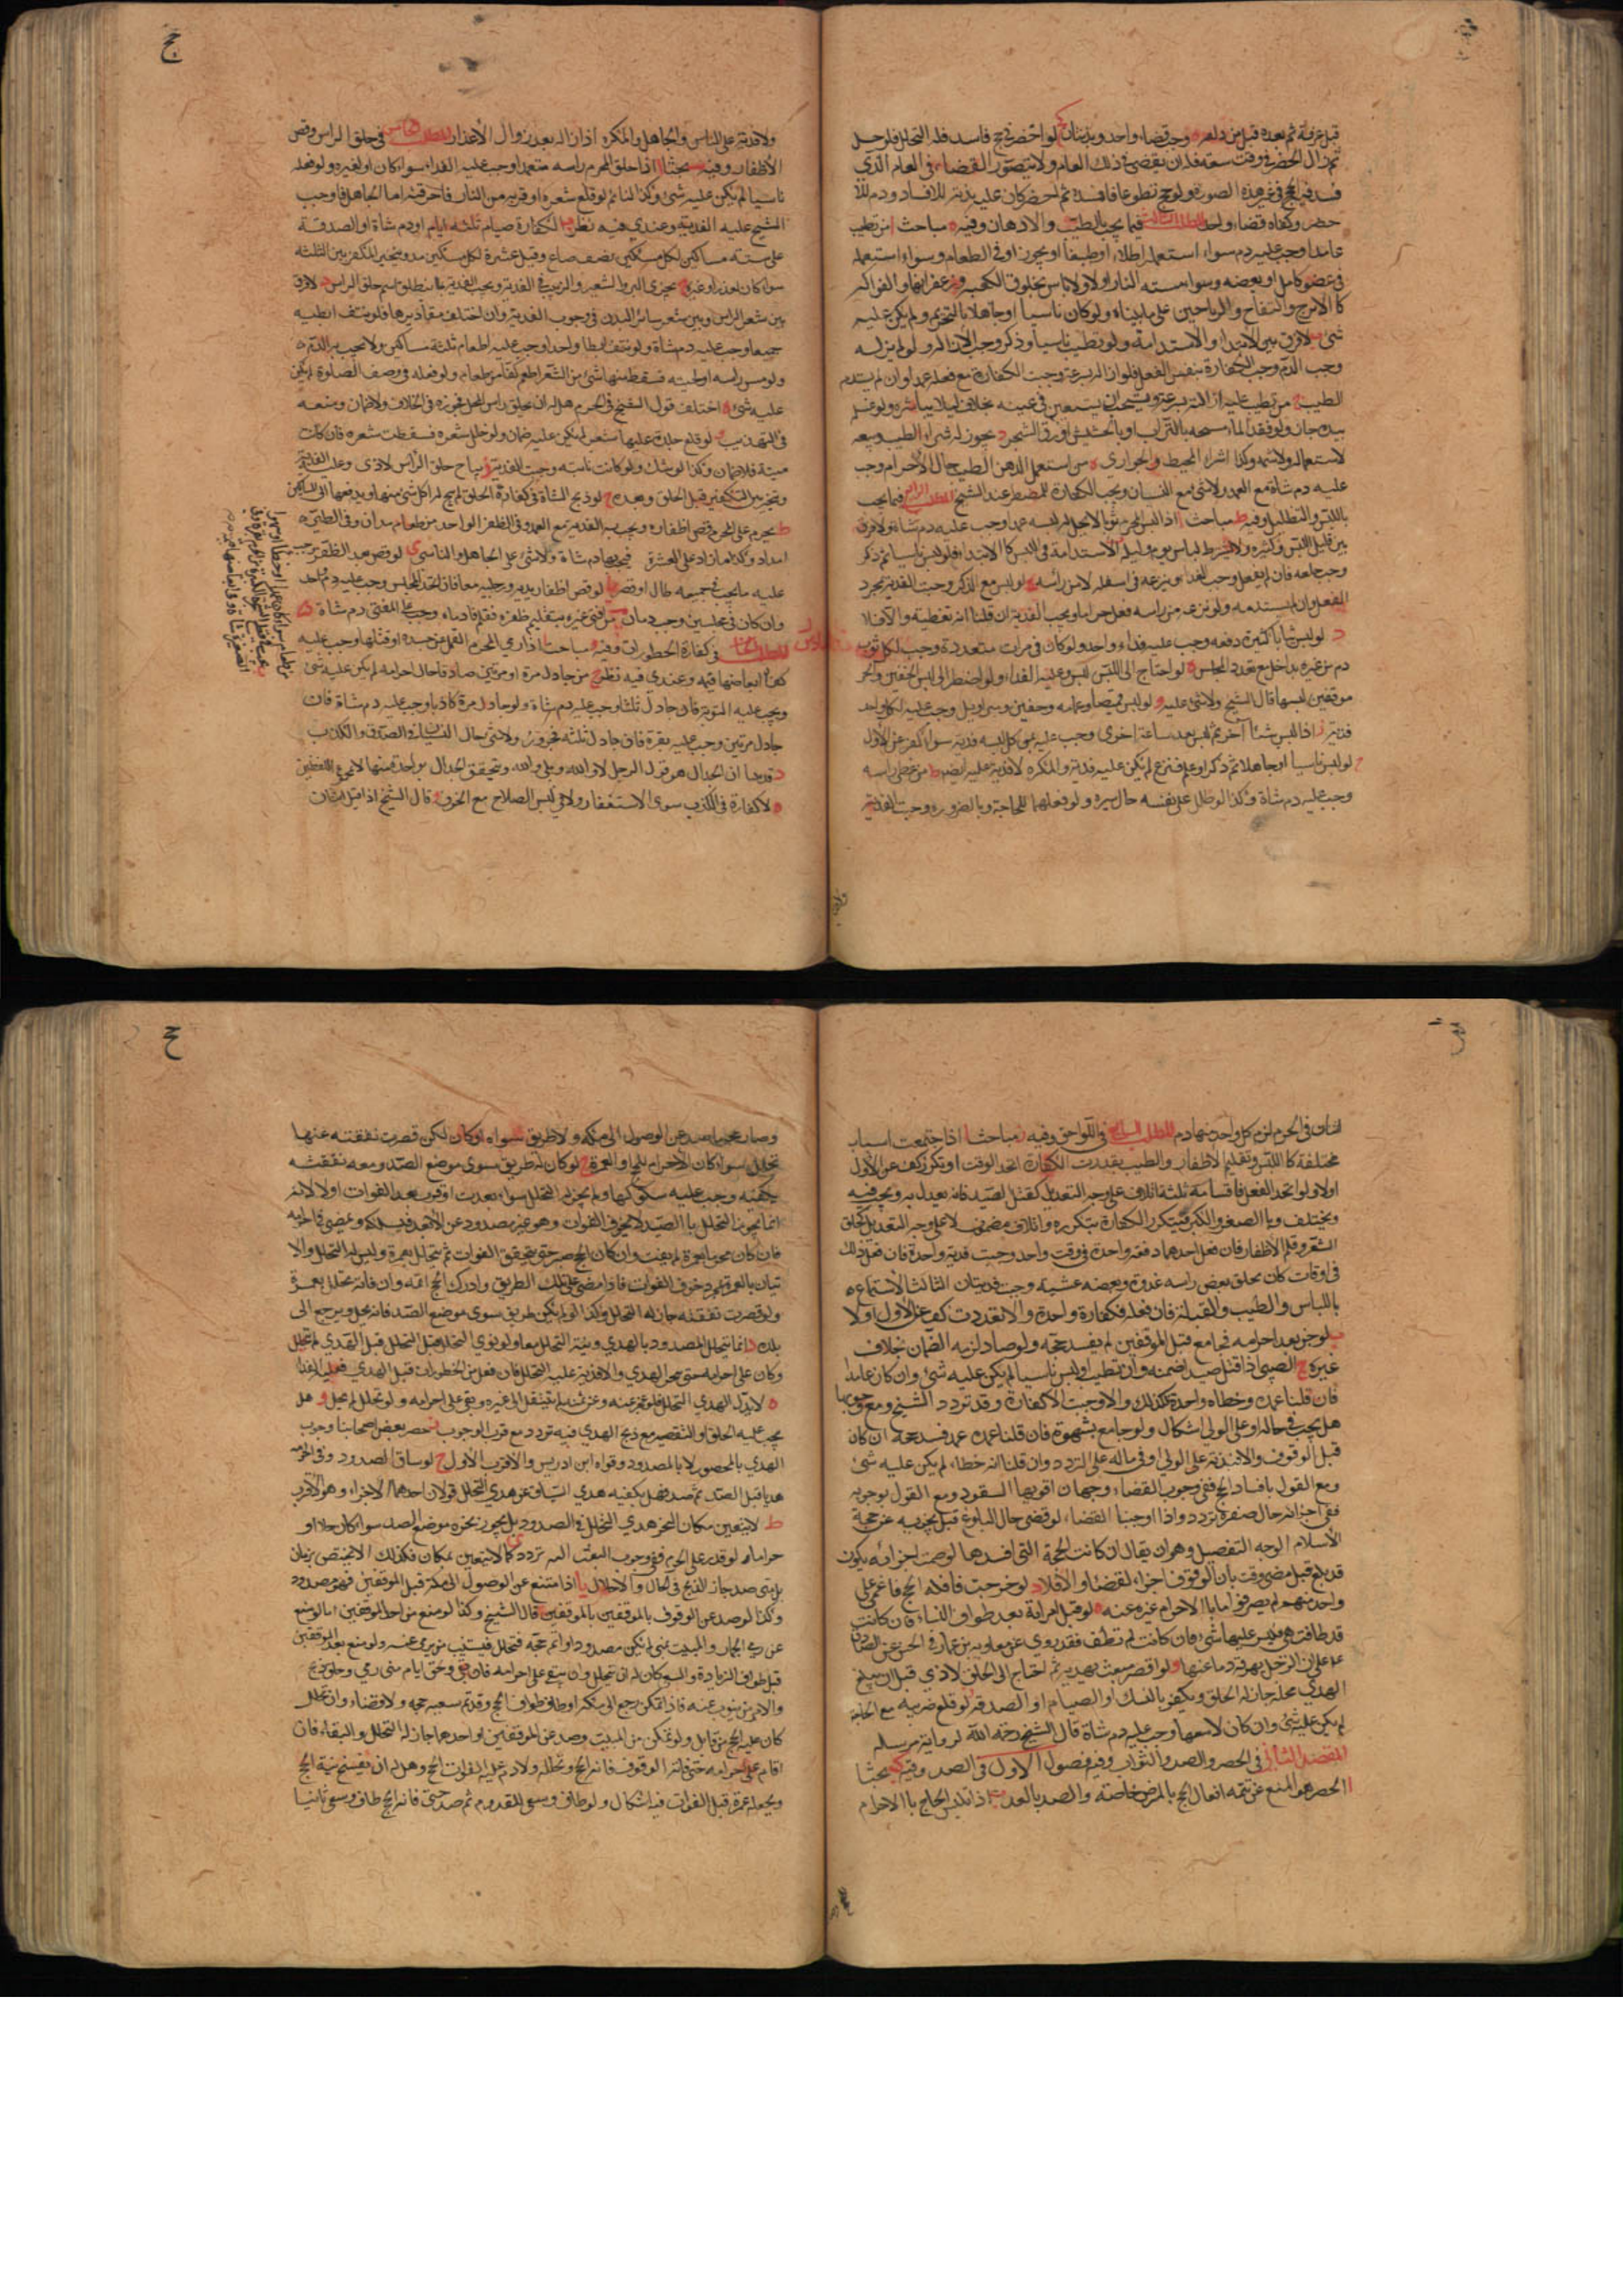 حج
قبل عرفة ثم بعده قبل من دلفه وجب قضاء واحد وبدنتان لو احصر في حج فاسد فله التحلل فلو حل
ثم زال الحصر في وقت سعة فله ان يقضي في ذلك العام ولا يتصور القضاء في العام الذي
فسد فيه الحج في غير هذه الصورة ولو حج تطوعا فافسده ثم احصر كان عليه بدنة للافساد ودم للا
حصر وكفاه قضاء واحد المطلب الثالث فيما يجب بالطيب والادهان وفيه مباحث ا من تطيب
عامدا وجب عليه دم سواء استعمله اطلاء او طيبا او بخورا او في الطعام وسواء استعمله
في عضو كامل او بعضه وسواء مسته النار او لا ولا باس بخلوق الكعبة وزعفرانها والفواكه
كالاترج والتفاح والرياحين على ما بيناه ولو كان ناسيا او جاهلا بالتحريم ولم يكن عليه
شئ لا فرق بين الابتداء والاستدامة ولو تطيب ناسيا وذكر وجب الازالة ولو لم يزله
وجب الدم وجب الكفارة بنفس الفعل فلو ازاله بسرعة وجبت الكفارة مع فعله عمدا وان لم يستدم
الطيب من تطيب عليه ازالته بسرعة ويستحب ان يستعين في غسله بحلال لئلا يباشره ولو غسله
بيده جاز ولو فقد الماء مسحه بالتراب او بالحشيش او ورق الشجر د يجوز له شراء الطيب وبيعه
لا استعماله ولا شمه وكذا شراء المخيط والجواري ه من استعمل الدهن الطيب حال الاحرام وجب
عليه دم شاة مع العمد ولا شئ مع النسيان ويجب الكفارة للمضطر عند الشيخ المطلب الرابع فيما يجب
باللبس والتظليل وفيه ط مباحث ا اذا لبس المحرم ثوبا لا يحل له لبسه عمدا وجب عليه دم شاة ولا فرق
بين قليل اللبس وكثيره ولا يشترط لباس يوم وليلة الاستدامة في اللبس كالابتداء فلو لبس ناسيا ثم ذكر
وجب خلعه فان لم يفعل وجب الفداء وينزعه من اسفله لا من راسه ج لو لبس مع الذكر وجبت الفدية بمجرد
الفعل وان لم يستدمه ولو نزعه من راسه فعل حراما ويجب الفدية ان قلنا انه تغطية والا فلا
د لو لبس ثيابا كثيرة دفعة وجب عليه فداء واحد ولو كان في مرات متعددة وجب لكل ثوب
دم من غير تداخل مع تعدد المجلس ه لو احتاج الى اللبس لبس وعليه الفداء ولو اضطر الى لبس الخفين والجر
موقين لبسهما قال الشيخ ولا شئ عليه و لو لبس قميصا وعمامة وخفين وسراويل وجب عليه لكل واحد
فدية ز اذا لبس شيئا آخر ثم لبس بعد ساعة اخرى وجب عليه عن كل لبسة فدية سواء كفر عن الاول
ح لو لبس ناسيا او جاهلا ثم ذكر او علم فنزع لم يكن عليه فدية والمكره لا فدية عليه ايضا ط من غطى راسه
وجب عليه دم شاة وكذا لو ظلل على نفسه حال سيره ولو فعلهما للحاجة وبالضرورة وجبت الفدية
ولا فدية على الناس والجاهل والمكره اذا زاله بعد زوال الاعذار المطلب الخامس في حلق الراس وقص
الاظفار وفيه مبحثا ا اذا حلق المحرم راسه متعمدا وجب عليه الفداء سواء كان او لغيره ولو فعله
ناسيا لم يكن عليه شئ وكذا النائم لو قلع شعره او قربه من النار فاحرقته اما الجاهل فاوجب
الشيخ عليه الفدية وعندي فيه نظر الكفارة صيام ثلثة ايام او دم شاة او الصدقة
على ستة مساكين لكل مسكين نصف صاع وقيل عشرة لكل مسكين مد ويتخير المكفر بين الثلثة
سواء كان لعذر او غيره يجزي البر والشعير والزبيب في الفدية ويجب الفدية بما ينطلق اسم حلق الراس لا فرق
بين شعر الراس وبين شعر سائر البدن في وجوب الفدية وان اختلف مقاديرها فلو نتف ابطيه
جميعا وجب عليه دم شاة ولو نتف ابطا واحدا وجب عليه اطعام ثلثة مساكين ولا يجب به الدم ه
ولو مس راسه او لحيته فسقط منهما شئ من الشعر اطعم كفا من طعام ولو فعله في وضوء الصلوة لم يكن
عليه شئ ه اختلف قول الشيخ في المحرم هل له ان يحلق راس المحل فجوزه في الخلاف ولا ضمان ومنعه
في التهذيب لو قلع جلدة عليها شعر لم يكن عليه ضمان ولو خلل شعره فسقطت شعرة فان كانت
ميتة فلا ضمان وكذا لو شك ولو كانت نابتة وجبت الفدية ز يباح حلق الراس لاذى وعليه الفدية
ويتخير بين التكفير قبل الحلق وبعده ح لو ذبح الشاة في كفارة الحلق لم يبح له اكل شئ منها ويدفعها الى المساكين
ط يحرم على المحرم قص اظفاره ويجب به الفدية مع العمد وفي الظفر الواحد مد من طعام وفي الظفرين مدان
امداد وكذا ما زاد على العشرة فيجب دم شاة ولا شئ على الجاهل والناسي ي لو قص بعض الظفر وجب
عليه ما يجب في جميعه طال او قصر يا لو قص اظفار يديه ورجليه معا فان اتحد المجلس وجب عليه دم واحد
وان كان في مجلسين وجب دمان من افتى غيره بتقليم ظفره فقلم فادماه وجب على المفتي دم شاة
المطلب السادس في كفارة المحظورات وفيه مباحث ا اذا رمى المحرم القمل من جسده او قتلها وجب عليه
كف من طعام وعندي فيه نظر ج من جادل مرة او مرتين صادقا حال احرامه لم يكن عليه شئ
ويجب عليه التوبة فان جادل ثلثا وجب عليه دم شاة ولو جادل مرة كاذبا وجب عليه دم شاة فان
جادل مرتين وجب عليه بقرة فان جادل ثلثة فجزور ولا شئ حال النسيان في الصدق والكذب
د قد بينا ان الجدال هو قول الرجل لا والله وبلى والله ويتحقق الجدال بواحدة منهما لا بمجموع اللفظين
ه لا كفارة في الكذب سوى الاستغفار ولا في لبس السلاح مع الخوف قال الشيخ اذا قتل اثنان
حج
اثنان في الحرم لزم كل واحد منهما دم المطلب السابع في اللواحق وفيه مباحث ا اذا اجتمعت اسباب
مختلفة كاللبس وتقليم الاظفار والطيب تعددت الكفارة اتحد الوقت او تكرر كفر عن الاول
اولا ولو اتحد الفعل فاقسامه ثلثة اتلاف على وجه التعديل كقتل الصيد فانه يعدل به ويجب فيه
ويختلف بالصغر والكبر فيتكرر الكفارة بتكرره واتلاف مضمون لا على وجه التعديل كحلق
الشعر وقلم الاظفار فان فعل احدهما دفعة واحدة في وقت واحد وجبت فدية واحدة فان فعل ذلك
في اوقات كان يحلق بعض راسه غدوة وبعضه عشية وجبت فديتان الثالث الاستمتاع
باللباس والطيب والقبلة فان فعله فكفارة واحدة والا تعددت كفر عن الاول او لا
ب لو جن بعد احرامه فجامع قبل الموقفين لم يفسد حجه ولو صاد لزمه الضمان خلاف
غيره ج الصبي اذا قتل صيدا ضمنه وان تطيب او لبس ناسيا لم يكن عليه شئ وان كان عامدا
فان قلنا عمده وخطاه واحد فكذلك والا وجبت الكفارة وقد تردد الشيخ ومع وجوبها
هل يجب في ماله او على الولي اشكال ولو جامع بشهوة فان قلنا عمده عمد فسد حجه ان كان
قبل الوقوف والا بدنة على الولي او في ماله على التردد وان قلنا انه خطاء لم يكن عليه شئ
ومع القول بافساد الحج ففي وجوب القضاء وجهان اقويهما السقوط ومع القول بوجوبه
ففي اجزائه حال صغره تردد واذا اوجبنا القضاء لو قضى حال البلوغ فهل يجزيه عن حجة
الاسلام الوجه التفصيل وهو ان يقال ان كانت الحجة التي افسدها لو صحت اجزائه بكون
قد بلغ قبل مضي وقت بان الوقوف اجزاء القضاء والا فلا د لو خرجت قافلة الحج فاغمي على
واحد منهم لم يصر محرما باحرام غيره عنه ه لو قبل امراته بعد طواف النساء فان كانت
قد طافت هي فليس عليها شئ وان كانت لم تطف فقد روى عن معاوية بن عمار في الحسن عن الصادق
على ان الرجل يهريق دما عنها و لو احصر فبعث بهديه ثم احتاج الى الحلق لاذى قبل ان يبلغ
الهدي محله جاز له الحلق ويكفر بالنسك او الصيام او الصدقة ز لو قلع ضرسه مع الحاجة
لم يكن عليه شئ وان كان لا معها وجب عليه دم شاة قال الشيخ رحمه الله لرواية مرسلة
المقصد الثاني في الحصر والصد والثواب وفيه فصول الاول في الصد وفيه بحثا
ا الحصر هو المنع عن تتمة افعال الحج بالمرض خاصة والصد بالعدو ب اذا تلبس الحاج بالاحرام
وصار محرما صد عن الوصول الى مكة ولا طريق سواه او كان لكن قصرت نفقته عنها
تحلل سواء كان الاحرام للحج او العمرة ج لو كان له طريق سوى موضع الصد ومعه نفقة
يكفيه وجب عليه سلوكها ولم يجز له التحلل سواء بعدت او قربت بعد الفوات او لا لانه
انما يجوز التحلل بالصد لا بخوف الفوات وهو غير مصدود عن الابعد فيسلكه ويمضي في احرامه
فان كان محرما بعمرة لم يفت وان كان بحج صبر حتى يتحقق الفوات ثم يتحلل بعمرة وليس له التحلل والا
تيان بالعمرة بمجرد خوف الفوات فاذا مضى على تلك الطريق وادرك الحج اتمه وان فاته تحلل بعمرة
ولو قصرت نفقته جاز له التحلل وكذا لو لم يكن له طريق سوى موضع الصد فانه يحل ويرجع الى
بلده د انما يتحلل المصدود بالهدي ونية التحلل معا ولو نوى التحلل قبل الهدي لم يتحلل
وكان على احرامه حتى ينحر الهدي ولا فدية عليه التحلل فان فعل من المحظورات قبل الهدي فعليه الفداء
ه لا بدل لهدي التحلل فلو عجز عنه وعن ثمنه لم ينتقل الى غيره وبقي على احرامه ولو تحلل لم يحل و هل
يجب عليه الحلق او التقصير مع ذبح الهدي فيه تردد مع قرب الوجوب ز خصص بعض اصحابنا وجوب
الهدي بالمحصور لا بالمصدود وقواه ابن ادريس والاقرب الاول ح لو ساق المصدود وفي احرامه
هديا قبل الصد ثم صد فهل يكفيه هدي السياق عن هدي التحلل قولان احدهما الاجزاء وهو الاقرب
ط لا يتعين مكان لنحر هدي التحلل في الصدود بل يجوز نحره موضع الصد سواء كان حلا او
حراما ولو قدر على الحرم ففي وجوب البعث اليه تردد كما لا يتعين بمكان فكذلك لا يختص بزمان
بل متى صد جاز الذبح في الحال والاحلال يا اذا امتنع عن الوصول الى مكة قبل الموقفين فهو مصدود
وكذا لو صد عن الوقوف بالموقفين قال الشيخ وكذا لو منع من احد الموقفين اما لو منع
عن رمي الجمار والمبيت بمنى لم يكن مصدودا واتم حجه فيتحلل فيستنيب من يرمي عنه ولو منع بعد الموقفين
قبل طواف الزيارة والسعي كان له ان يتحلل وان يبقى على احرامه فان بقي ولحق ايام منى رمى وحلق وذبح
والا امر من ينوب عنه فاذا تمكن رجع الى مكة وطاف طواف الحج وقد تم سعيه حجه ولا قضاء وان تحلل
كان عليه الحج من قابل ولو تمكن من المبيت وصد عن الموقفين او احدهما جاز له التحلل والبقاء فان
اقام على احرامه حتى فاته الوقوف فاته الحج وتحلل ولا دم عليه لفوات الحج وهل له ان يفسخ نية الحج
ويجعله عمرة قبل الفوات فيه اشكال ولو طاف وسعى للقدوم ثم صد حتى فاته الحج طاف وسعى ثانيا